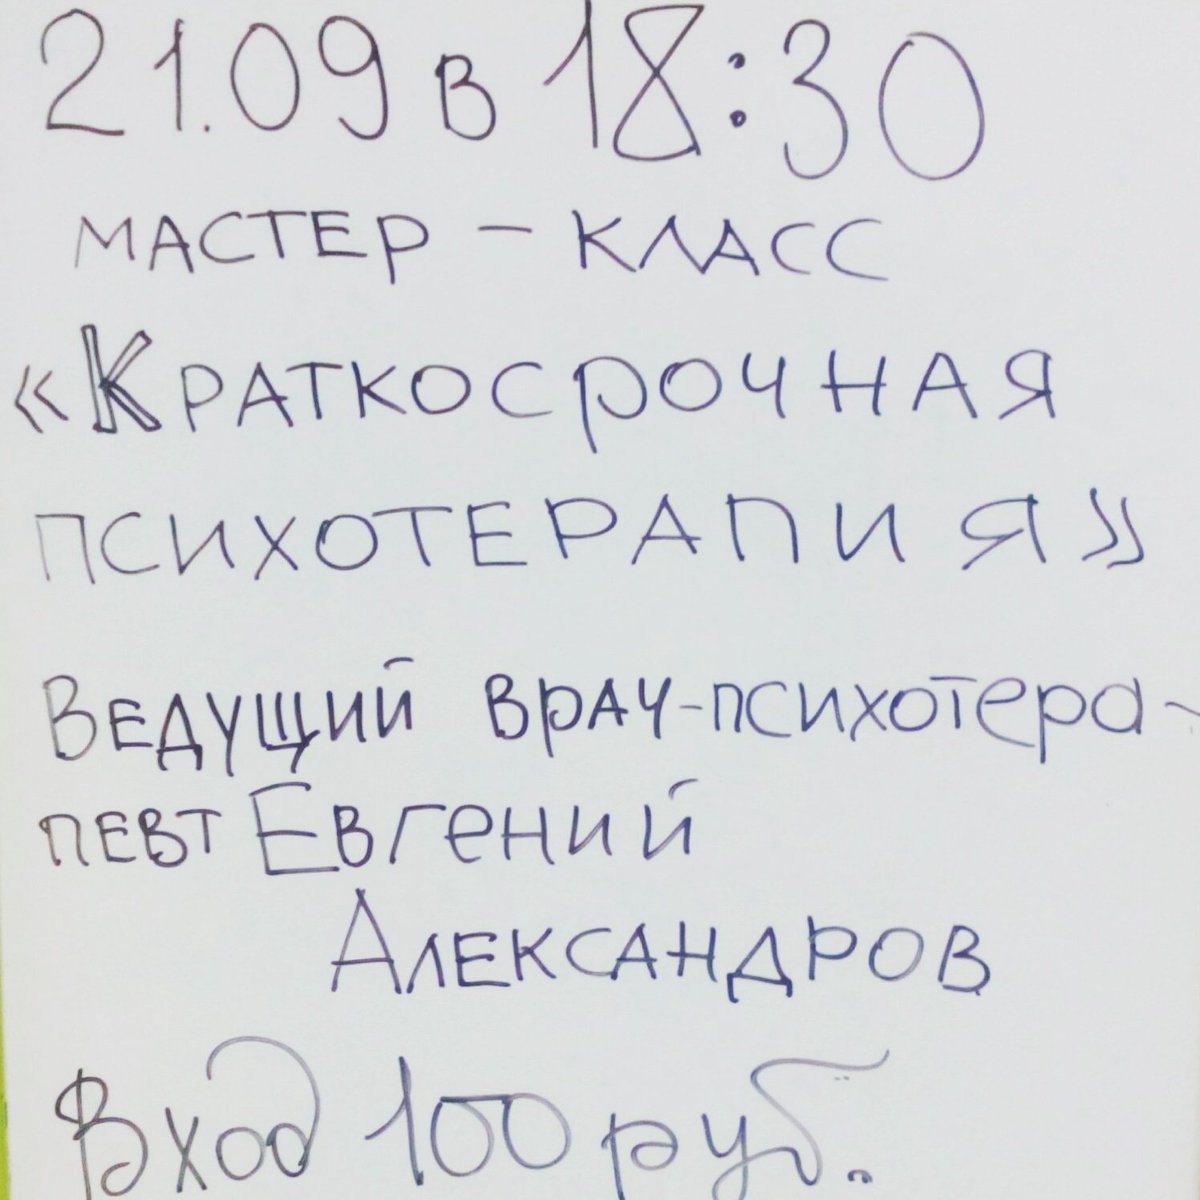 21.09 в 18:30
МАСТЕР - КЛАСС
«КРАТКОСРОЧНАЯ
ПСИХОТЕРАПИЯ»
ВЕДУЩИЙ ВРАЧ-ПСИХОТЕРА-
ПЕВТ ЕВГЕНИЙ
АЛЕКСАНДРОВ
Вход 100 руб.